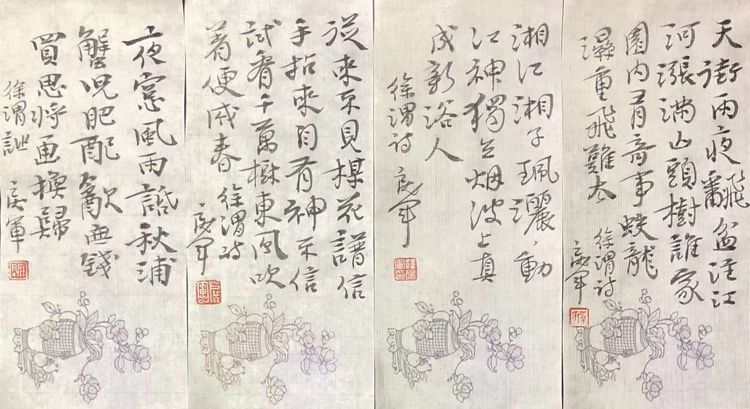 天街雨夜翻盆注江
河漲滿山頭樹誰家
園內有奇事蛟龍
濕重飛難去
徐渭詩
湘江湘子珮灑、動
江神獨立烟波上真
成新浴人
徐渭詩
從來不見梅花譜信
手拈來自有神不信
試看千萬樹東風吹
着便成春 徐渭詩
夜窓風雨話秋浦
蟹況肥配飲無錢
買思將画換歸
徐渭